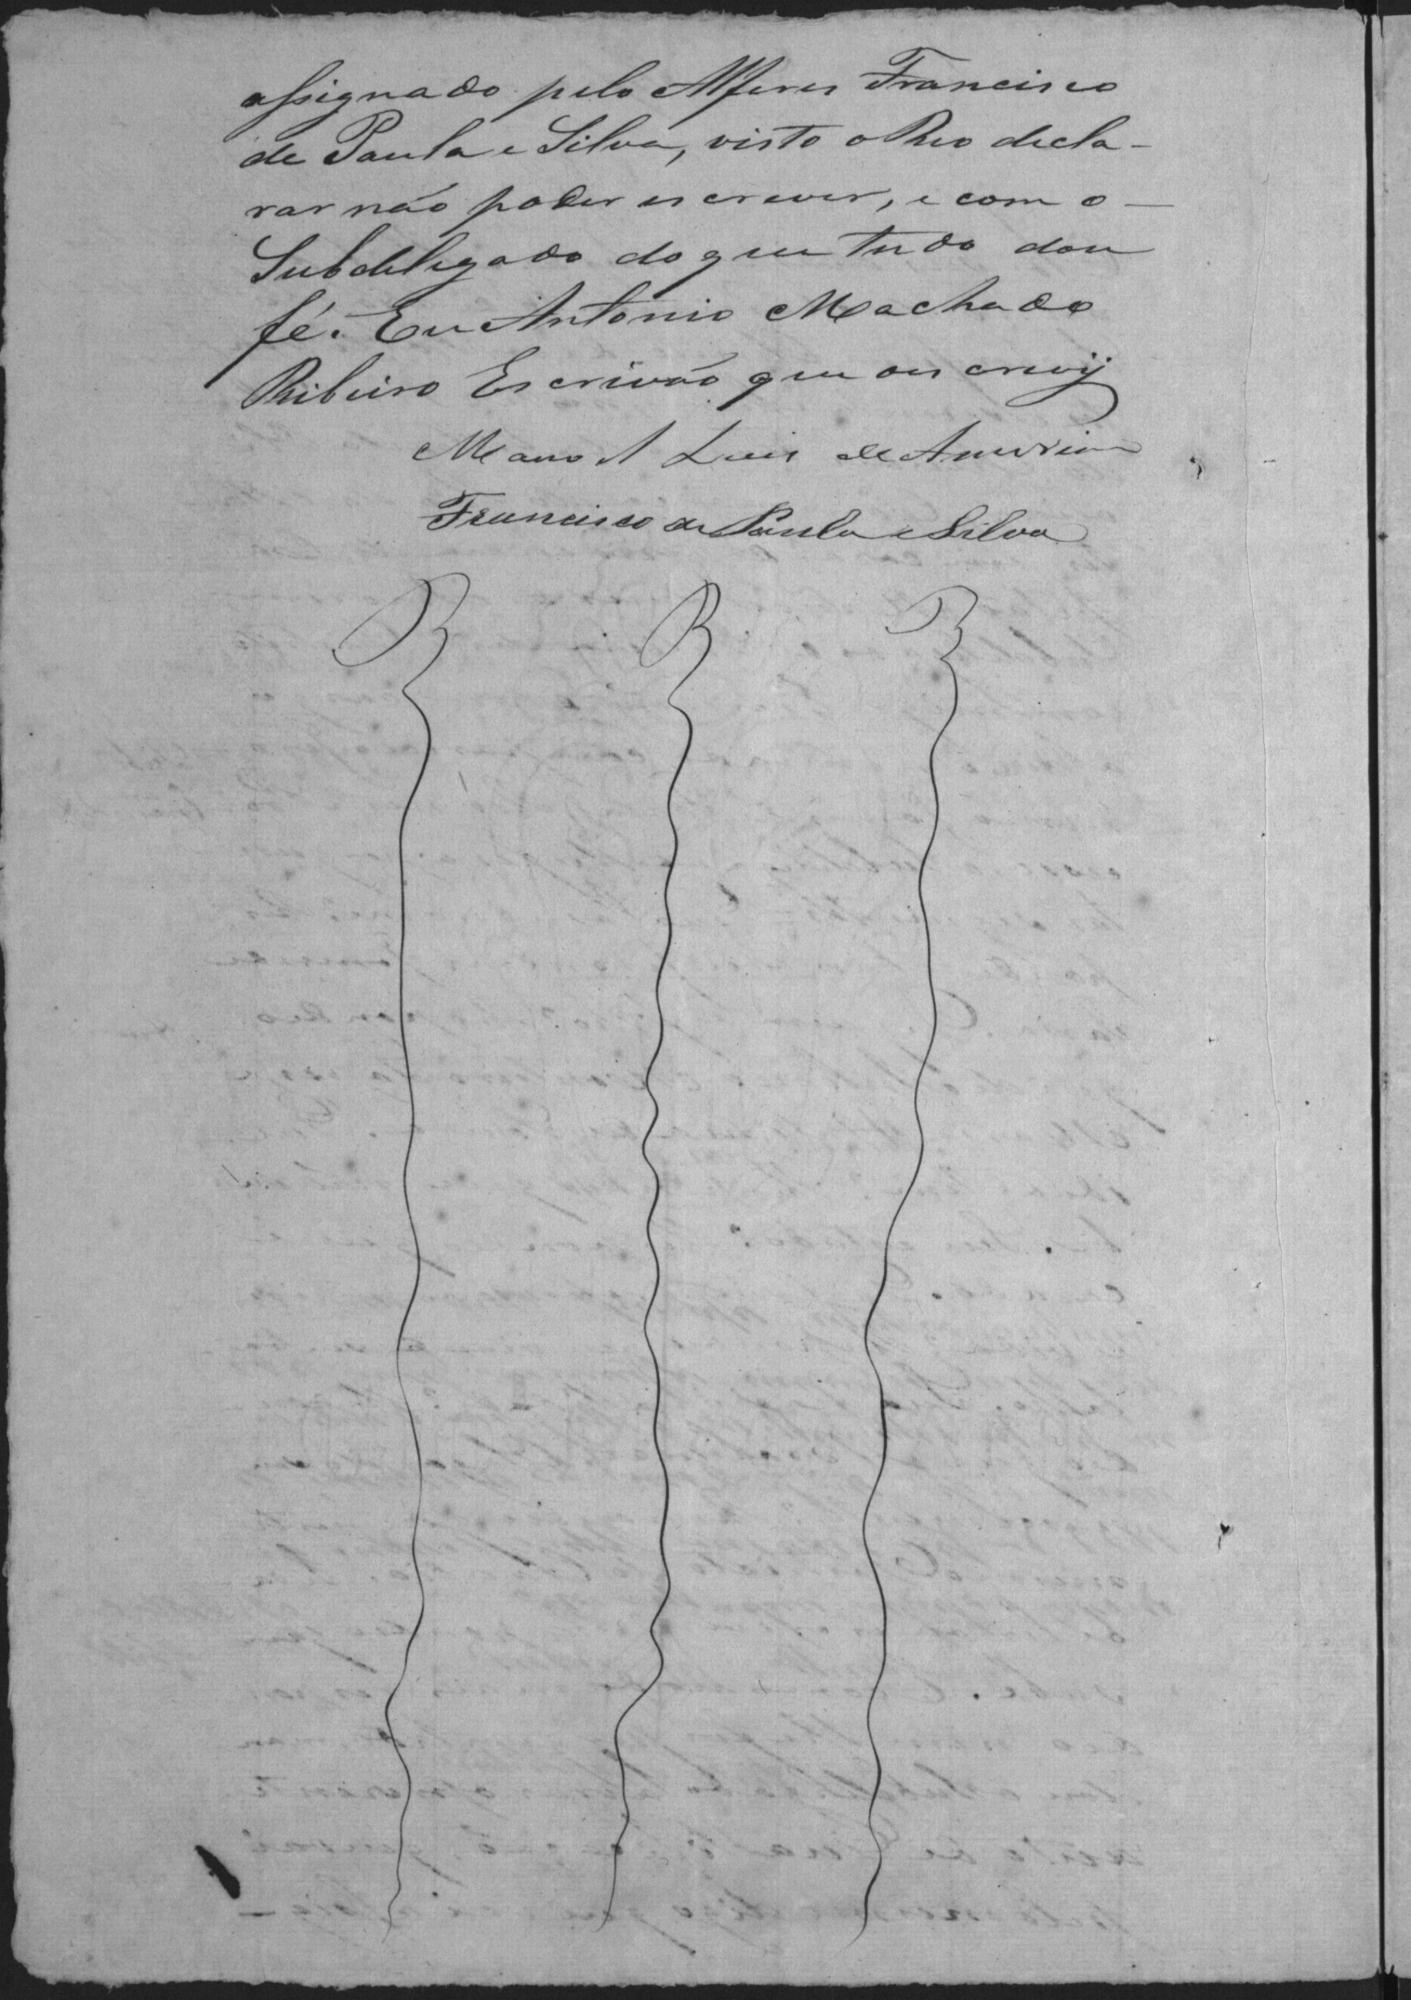 assignado pelo Alferes Francisco
de Paula e Silva, visto o Reo decla-
rar não poder escrever, e com o
Subdelegado do que tudo dou
fé. Eu Antonio Machado
Ribeiro Escrivão que o escrevy
Manoel Luis de
Francisco de Paula e Silva
R R R